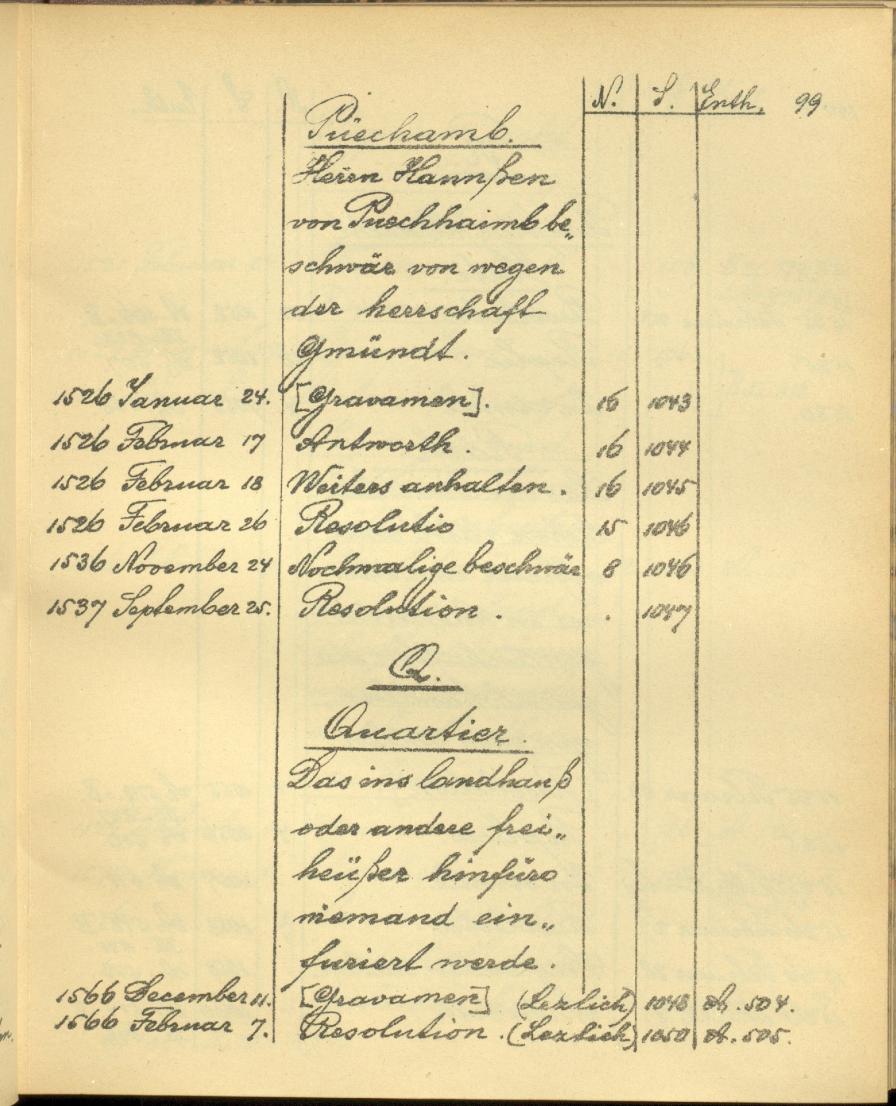 N. S. Enth. 99
Püechamb.
Herrn Hannßen
von Puechhaimb be„
schwär von wegen
der herrschaft
Gmündt.
1526 Januar 24. [Gravamen]. 16 1043
1526 Februar 17 Antworth. 16 1044
1526 Februar 18 Weiters anhalten. 16 1045
1526 Februar 26 Resolutio 15 1046
1536 November 24 Nochmalige beschwär 8 1046
1537 September 25. Resolution. . 1047
Q.
Quartier.
Das ins landhauß
oder andere frei„
heüßer hinfüro
niemand ein„
furiert werde.
1566 December 11. [Gravamen] (Lezlich) 1048 504.
1566 Februar 7. Resolution. (Lezlich) 1050 505.